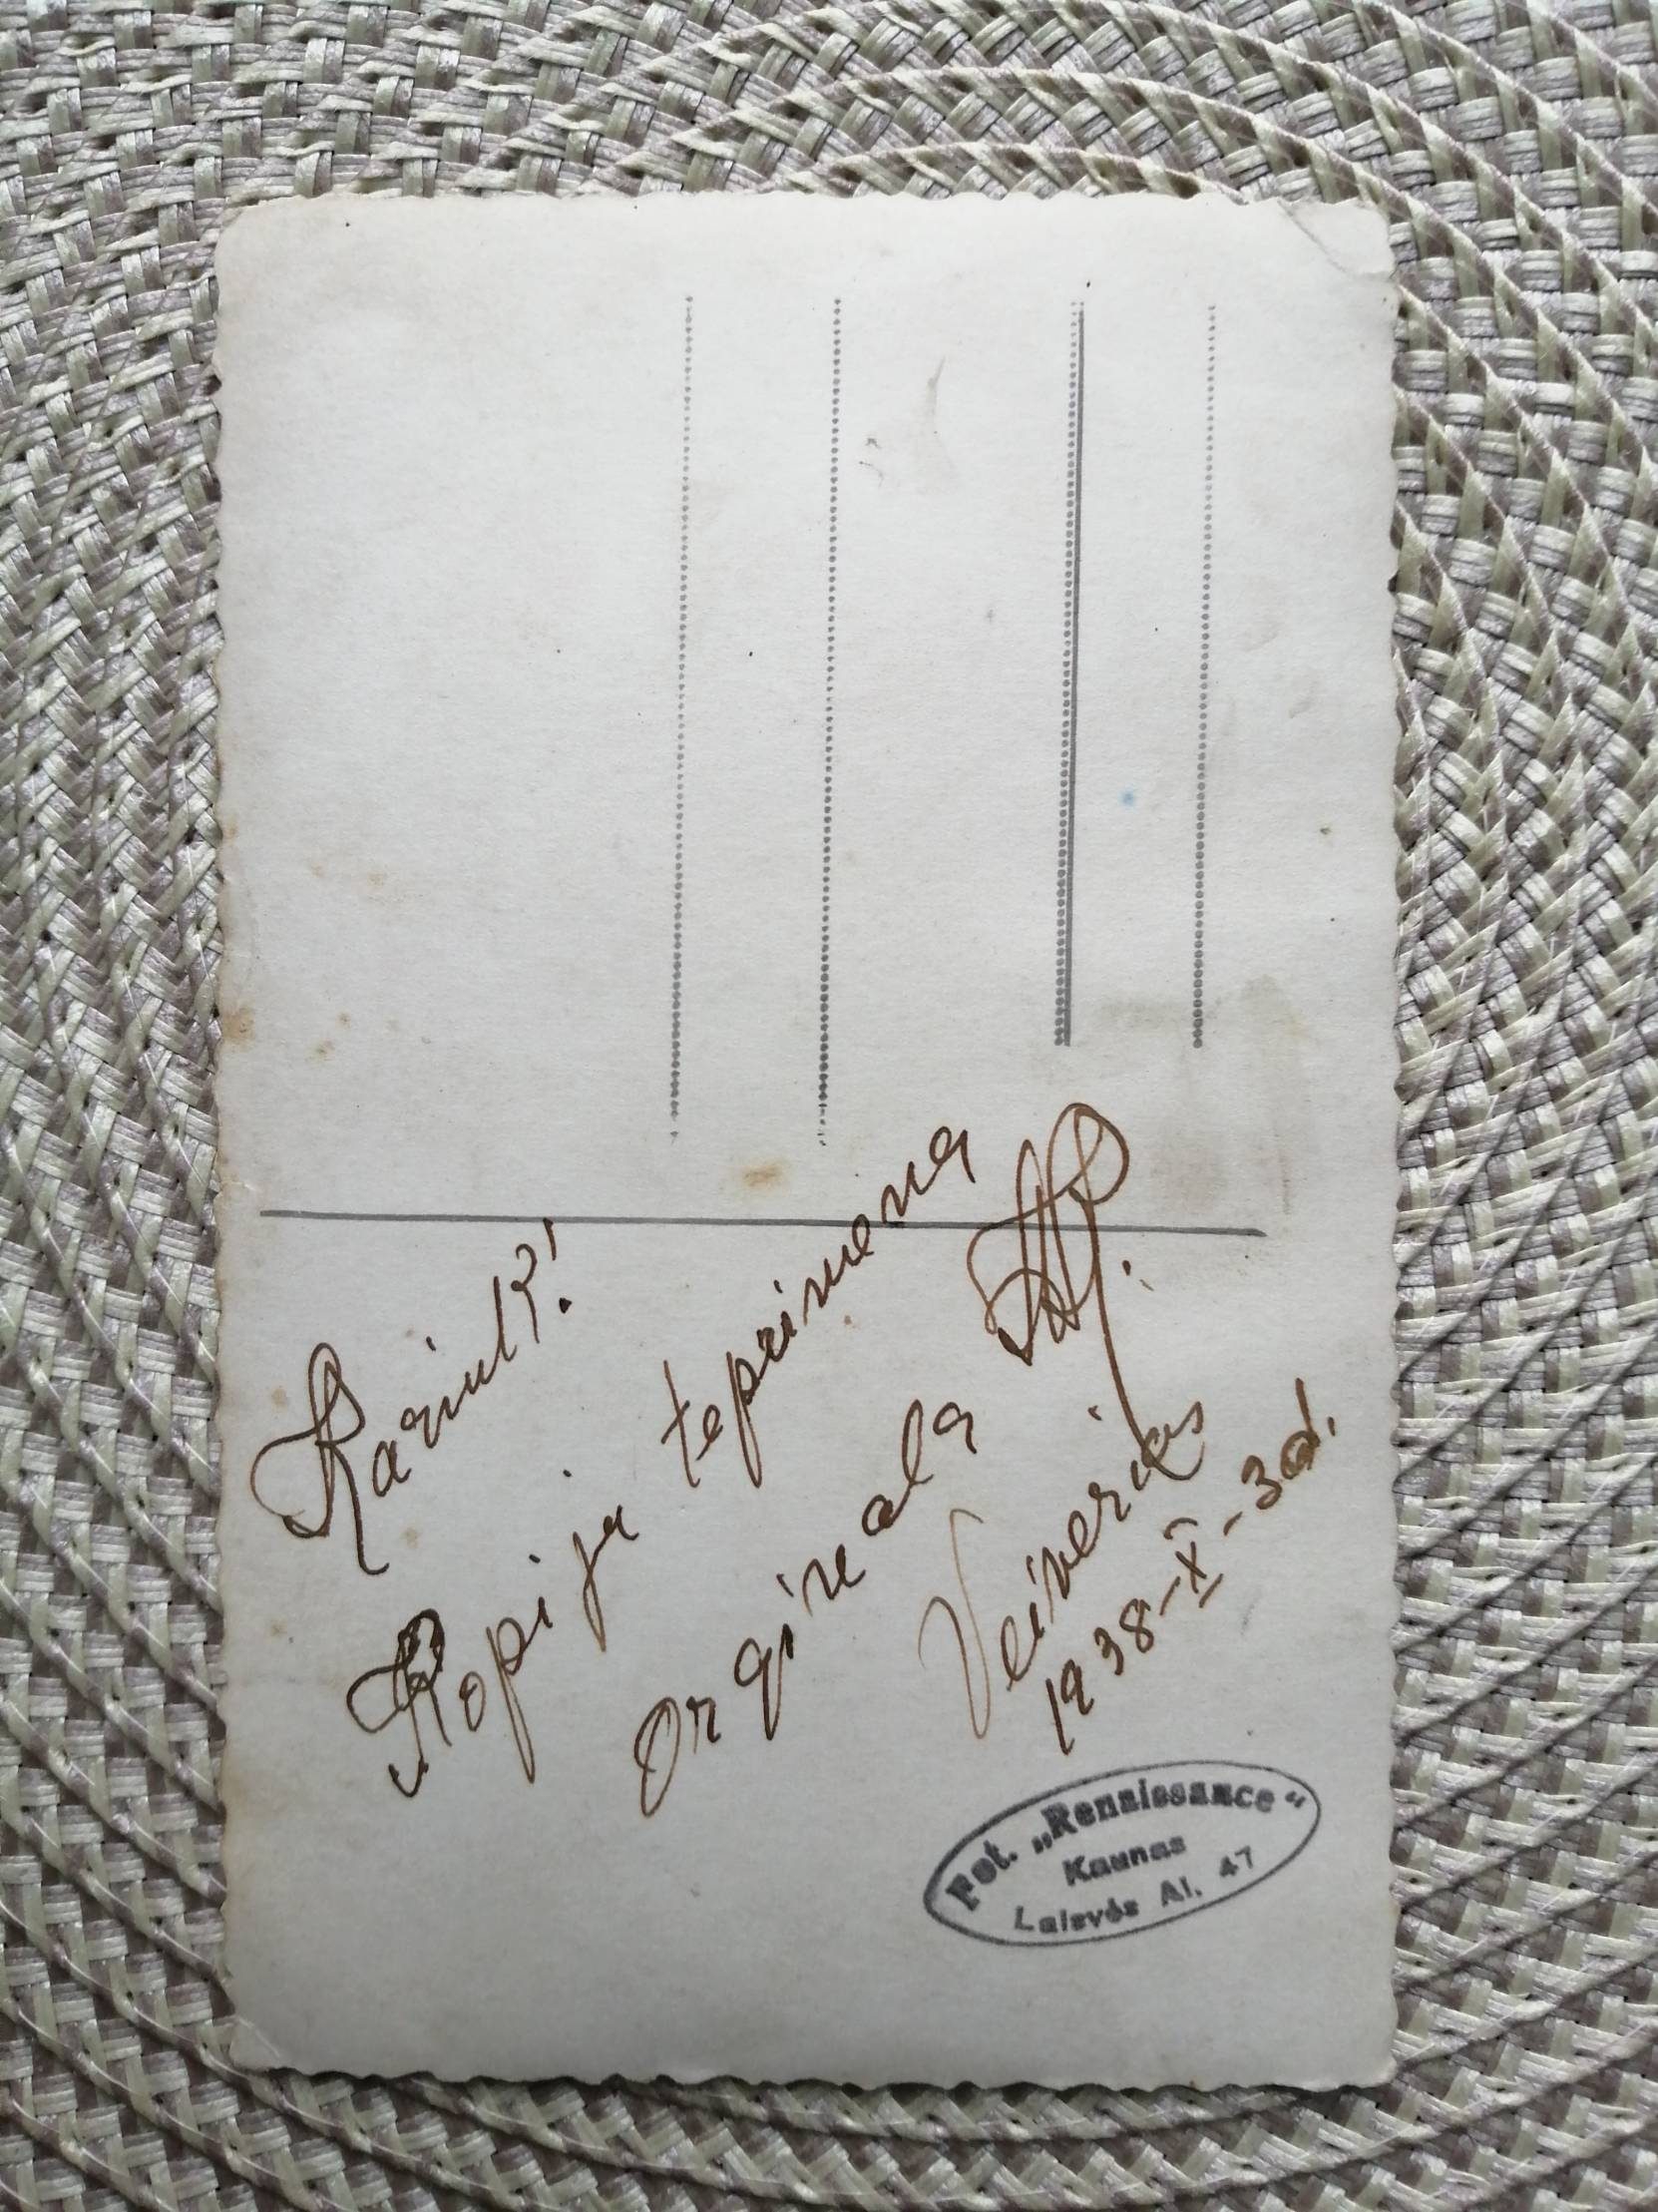 Kaziuk!
Kopija teprimena
orginala
Veiveriai
1938-X-30d.
Fot. „Renaissance“
Kaunas
Laisvės Al. 47